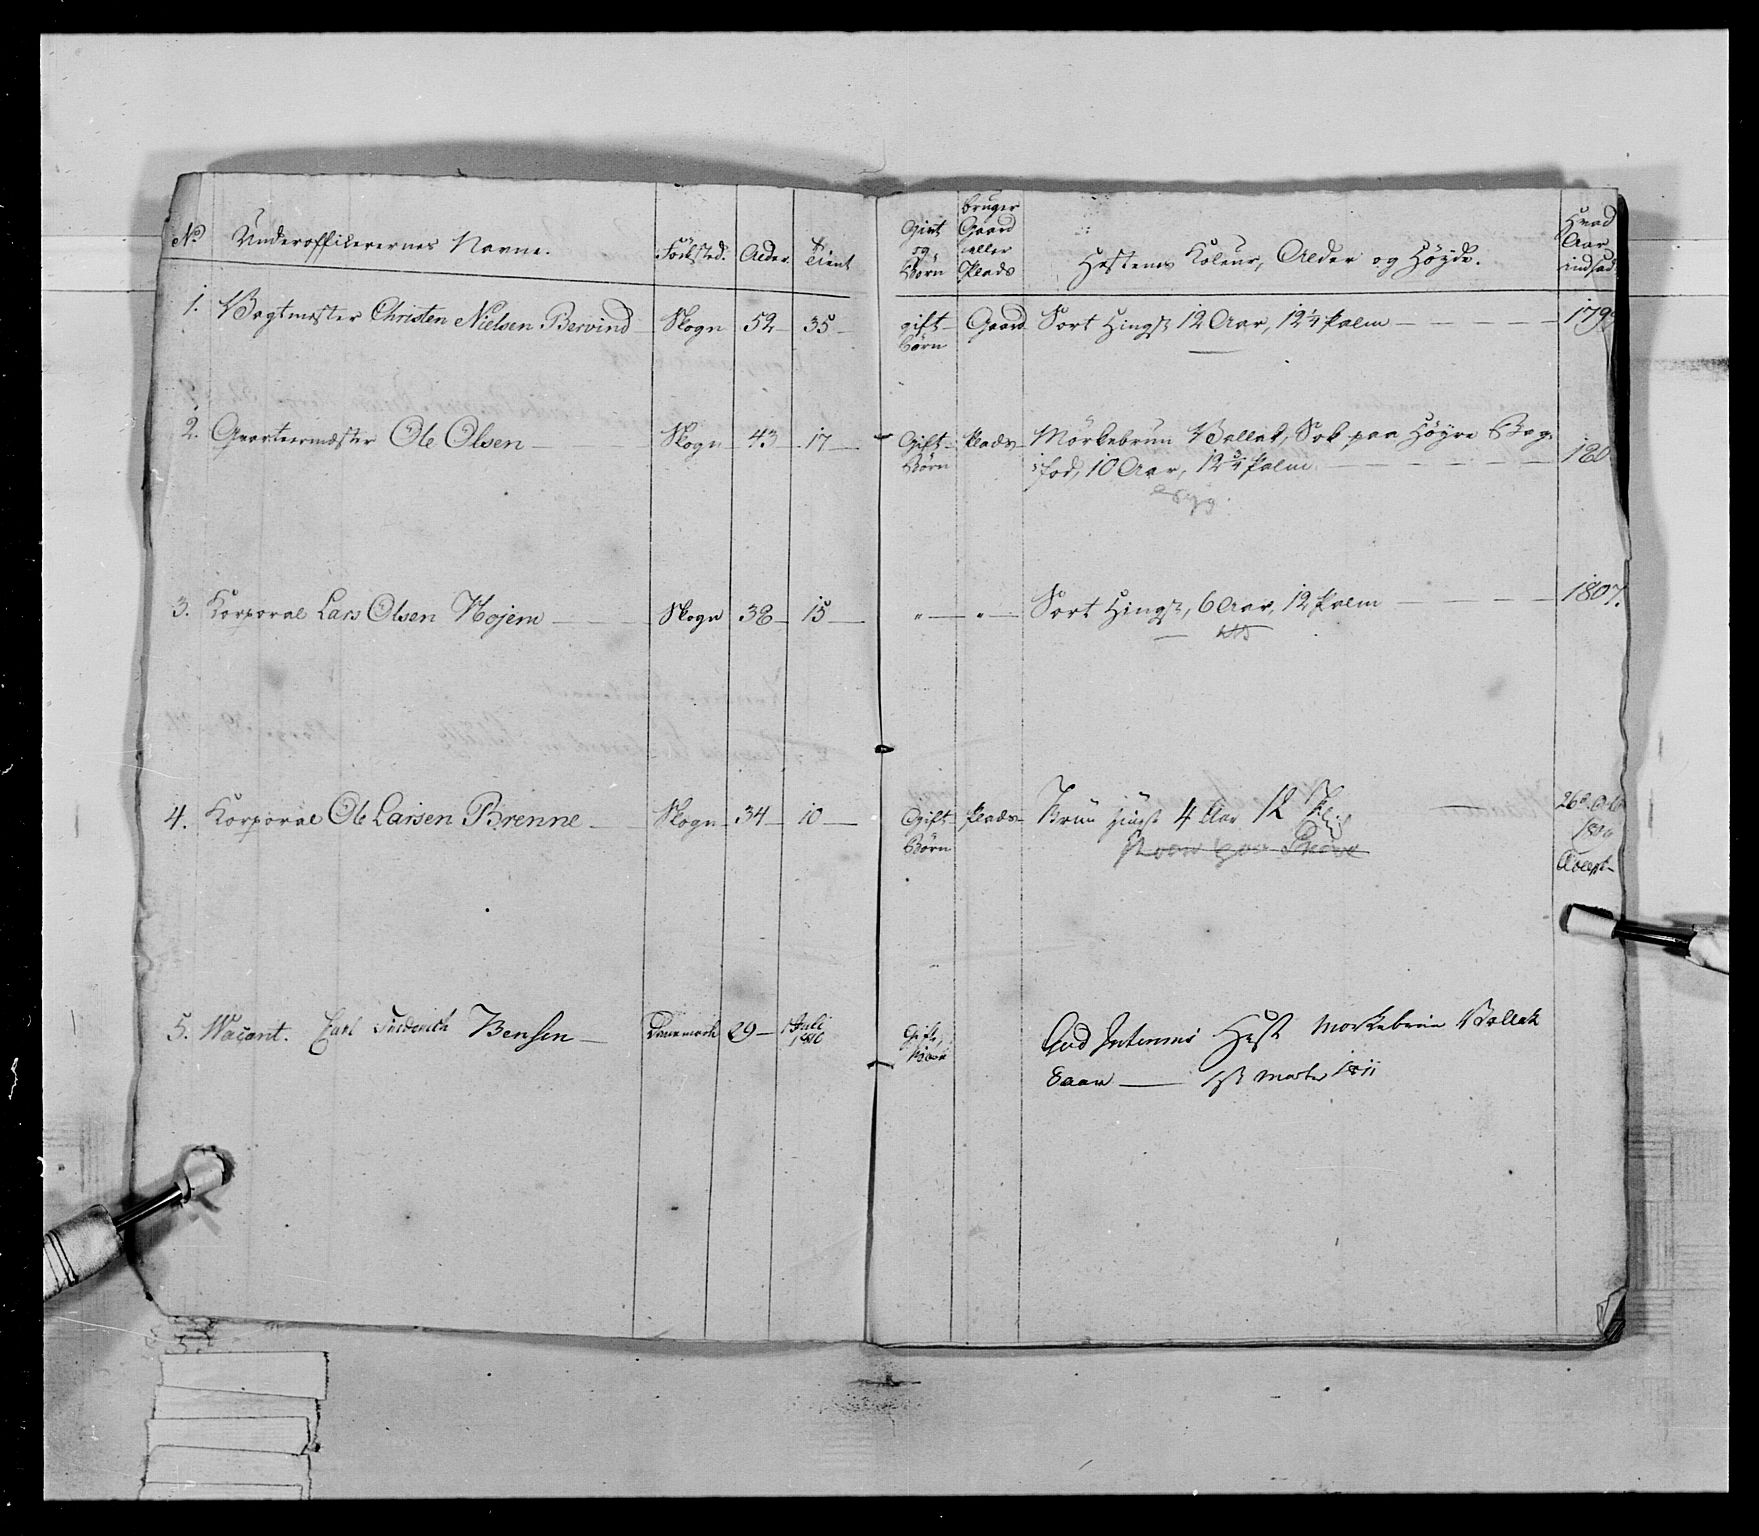 No Underofficerernes Navne. Födested. Alder. Tient
Givt og Börn
bruger Gaard eller Plads
Hestens Koleur, Alder og Höyde.
Hvad Aar indsad.
1. Vagtmester Christen Nielsen Bervind Skogn 52 35 gift Börn Gaard Sort Hingst 12 Aar, 12 1/4 Palm
2. Qvarteermester Ole Olsen Skogn 43 17 Gift Börn Plads Mörkebrun Vallak, Sok paa Höyre Bag-
fod, 10 Aar, 12 3/4 Palm
3. Korporal Lars Olsen Hojem Skogn 38 15 " " Sort Hingst, 6 Aar, 12 Palm 1807.
4. Korporal Ole Larsen Brenne Skogn 34 10 Gift Börn Plads Brun Hingst 4 Aar 12 Plm
5. Wacant. Carl Friderich Bensen Dannemark 29 1 Juli 1810 Gift, Börn Hest Morkebrun Vallak
8 aar 1ste Marts 1811